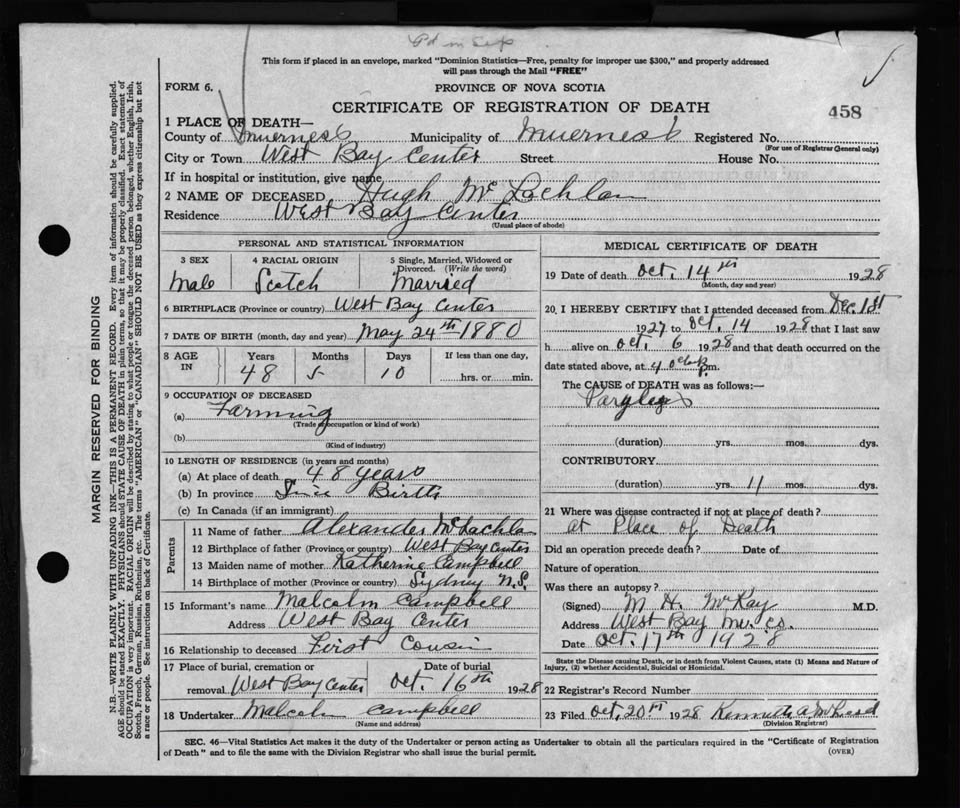 This form if placed in an envelope, marked "Dominion Statistics—Free, penalty for improper use $300," and properly addressed
will pass through the Mail "FREE"
FORM 6.
PROVINCE OF NOVA SCOTIA
CERTIFICATE OF REGISTRATION OF DEATH
458
1 PLACE OF DEATH—
County of Inverness Municipality of Inverness Registered No.
(For use of Registrar General only)
City or Town West Bay Center Street House No.
If in hospital or institution, give name
2 NAME OF DECEASED Hugh McLachlan
Residence West Bay Center
(Usual place of abode)
PERSONAL AND STATISTICAL INFORMATION
3 SEX 4 RACIAL ORIGIN 5 Single, Married, Widowed or
Divorced. (Write the word)
Male Scotch Married
6 BIRTHPLACE (Province or country) West Bay Center
7 DATE OF BIRTH (month, day and year) May 24th 1880
8 AGE IN Years Months Days If less than one day,
48 5 10 hrs. or min.
9 OCCUPATION OF DECEASED
(a) Farming
(Trade occupation or kind of work)
(b)
(Kind of industry)
10 LENGTH OF RESIDENCE (in years and months)
(a) At place of death 48 years
(b) In province Since Birth
(c) In Canada (if an immigrant)
Parents
11 Name of father Alexander McLachlan
12 Birthplace of father (Province or country) West Bay Center
13 Maiden name of mother Katherine Campbell
14 Birthplace of mother (Province or country) Sydney N.S.
15 Informant's name Malcolm Campbell
Address West Bay Center
16 Relationship to deceased First Cousin
17 Place of burial, cremation or Date of burial
removal West Bay Center Oct. 16th 1928
18 Undertaker Malcolm Campbell
(Name and address)
MEDICAL CERTIFICATE OF DEATH
19 Date of death Oct. 14th 1928
(Month, day and year)
20. I HEREBY CERTIFY that I attended deceased from Dec. 1st
1927 to Oct. 14 1928 that I last saw
h alive on Oct. 6 1928 and that death occurred on the
date stated above, at 4 m.
The CAUSE of DEATH was as follows:—
(duration) yrs. mos. dys.
CONTRIBUTORY
(duration) yrs. 11 mos. dys.
21 Where was disease contracted if not at place of death?
At Place of Death
Did an operation precede death? Date of
Nature of operation
Was there an autopsy?
(Signed) M. H. McKay M.D.
Address West Bay Inv. Co.
Date Oct. 17th 1928
State the Disease causing Death, or in death from Violent Causes, state (1) Means and Nature of
Injury, (2) whether Accidental, Suicidal or Homicidal.
22 Registrar's Record Number
23 Filed Oct. 20 1928 Kenneth A.
(Division Registrar)
SEC. 46—Vital Statistics Act makes it the duty of the Undertaker or person acting as Undertaker to obtain all the particulars required in the "Certificate of Registration
of Death" and to file the same with the Division Registrar who shall issue the burial permit.
(OVER)
MARGIN RESERVED FOR BINDING
N.B.—WRITE PLAINLY WITH UNFADING INK—THIS IS A PERMANENT RECORD. Every item of information should be carefully supplied.
AGE should be stated EXACTLY. PHYSICIANS should STATE CAUSE OF DEATH in plain terms, so that it may be properly classified. Exact statement of
OCCUPATION is very important. RACIAL ORIGIN will be described by stating to what people or tongue the deceased person belonged, whether English, Irish,
Scotch, French, German, Russian, Ruthenian, etc. The terms "AMERICAN" or "CANADIAN" SHOULD NOT BE USED as they express citizenship but not
a race or people. See instructions on back of Certificate.